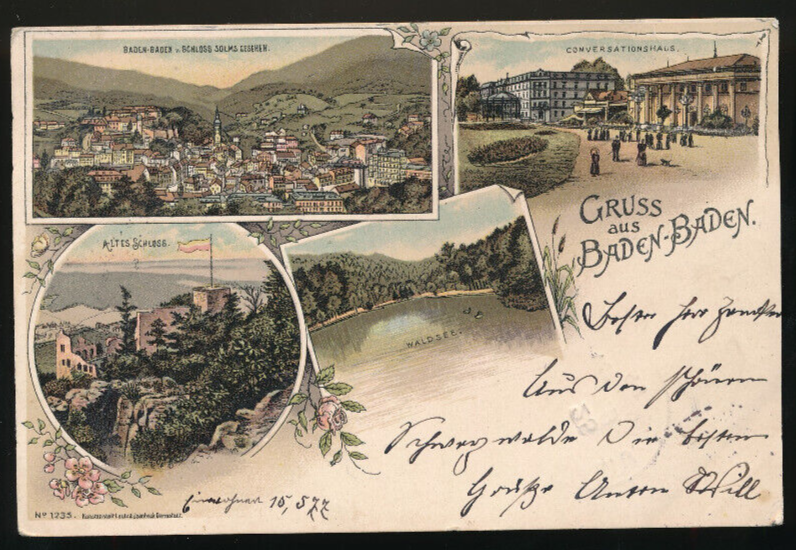 BADEN-BADEN v. SCHLOSS SOLMS GESEHEN.
CONVERSATIONSHAUS.
GRUSS
aus
BADEN-BADEN.
ALTES SCHLOSS.
WALDSEE.
Bester Herr
Aus den schönen
Schwarzwalde Die besten
Grüße Anton Will
Einwohner 15,577
Nº 1235.